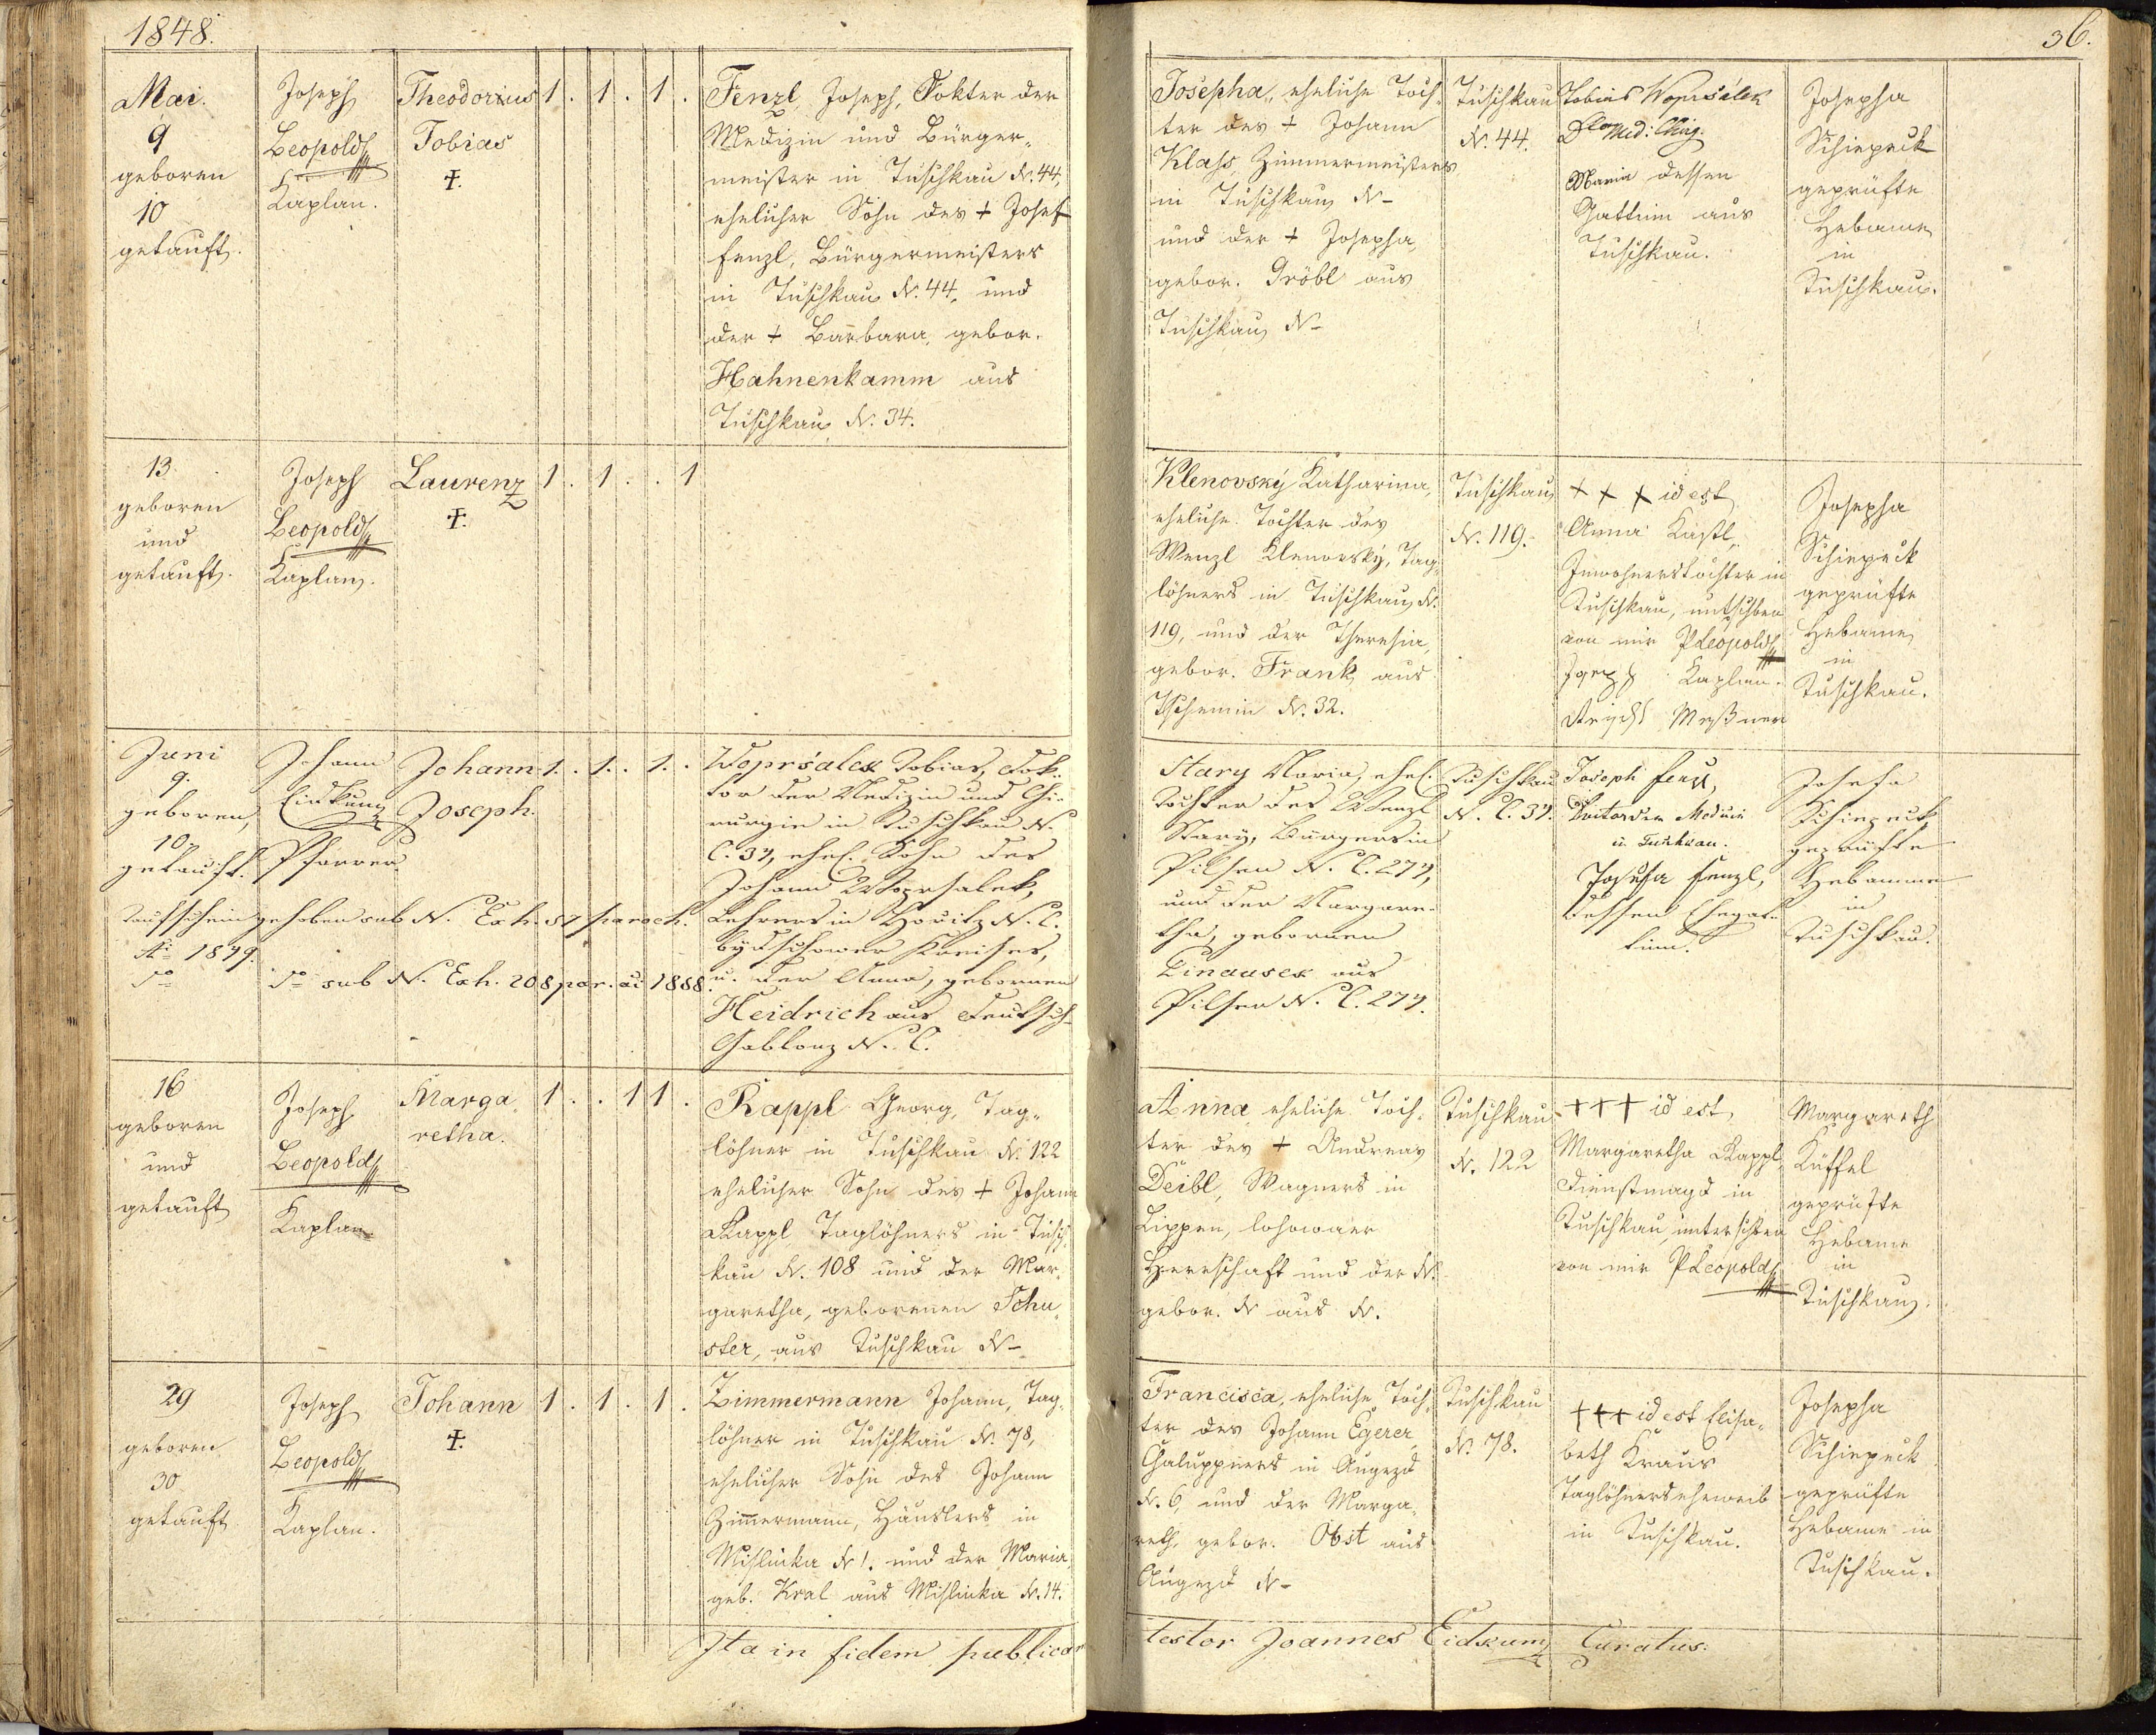 1848.
36.
Mai.
9
geboren
10
getauft.
Joseph
Leopold
Kaplan.
Theodorius
Tobias
†.
1 . 1 . 1 .
Fenzl, Joseph, Dokter der
Medizin und Bürger-
meister in Tuschkau N. 44,
ehelicher Sohn des + Josef
Fenzl, Bürgermeisters
in Tuschkau N. 44, und
der + Barbara, gebor.
Hahnenkamm aus
Tuschkau N. 34.
Josepha, eheliche Toch-
ter des + Johann
Klass, Zimmermeisters
in Tuschkau N-
und der + Josepha,
gebor. Gröbl aus
Tuschkau N-
Tuschkau
N. 44.
Tobias Wopršalek
Med: Chirg.
Maria dessen
Gattinn aus
Tuschkau.
Josepha
Schiepeck
geprüfte
Hebame
in
Tuschkau.
13.
geboren
und
getauft.
Joseph
Leopold
Kaplan.
Laurenz
†.
1 . 1 . . 1
Klenovský Katharina,
eheliche Tochter des
Wenzl Klenovský, Tag-
löhners in Tuschkau N.
119, und der Theresia,
gebor. Frank, aus
Tschemin N. 32.
Tuschkau
N. 119.
+ + + id est
Anna Kastl,
Inwohnerstochter in
Tuschkau,
von mir P Leopold
Kaplan.
Meßner
Josepha
Schiepeck
geprüfte
Hebame
in
Tuschkau.
Juni
9.
geboren,
10.
getauft.
Johann
Eidkum
Pfarrer.
Johann
Joseph.
1 . 1 . 1 .
Wopršalek Tobias, Dok-
tor der Medizin und Chi-
rurgie in Tuschkau N.
C. 37, ehel. Sohn des
Johann Woprsalek,
Lehrers in Hořitz N. C.
Bydschower Kreises,
u. der Anna, gebornen
Heidrich aus Deutsch-
Gablonz N. C.
Taufschein gehoben sub N. Exh. 57 paroch.
1849.
do do sub N. Exh. 208 par. ai 1888.
Stary Maria, ehel.
Tochter des Wenzl
Stary, Bürgers in
Pilsen N. C. 277,
und der Margare-
tha, gebornen
Linausek aus
Pilsen N. C. 277.
Tuschkau
N. C. 37.
Joseph Fenzl,
Doctor der Medicin
in Tuschkau.
Josefa Fenzl,
dessen Ehegat-
tinn.
Josefa
Schiepeck,
geprüfte
Hebamme
in
Tuschkau.
16
geboren
und
getauft
Joseph
Leopold
Kaplan
Marga
retha.
1 . . 1 1 .
Rappl Georg, Tag-
löhner in Tuschkau N. 122
ehelicher Sohn des + Johann
Rappl Taglöhners in Tusch-
kau N. 108 und der Mar-
garetha, geborenen Schu
ster, aus Tuschkau N-
Anna eheliche Toch-
ter des + Andreas
Deibl, Wagners in
Lippen, lohowaer
Herrschaft und der N.
gebor. N aus N.
Tuschkau
N. 122
+ + + id est
Margaretha Rappl,
Dienstmagd in
Tuschkau unterschrieben
von mir P Leopold
Margareth
Küffel
geprüfte
Hebame
in
Tuschkau.
29
geboren
30
getauft
Joseph
Leopold
Kaplan.
Johann
†.
1 . 1 . 1 .
Zimmermann Johann, Tag-
löhner in Tuschkau N. 78,
ehelicher Sohn des Johann
Zimmermann, Häuslers in
Mislinka N 1. und der Maria,
geb. Kral aus Mislinka N. 14.
Francisca, eheliche Toch-
ter des Johann Egerer,
Chaluppners in Augezd
N. 6, und der Marga-
reth, gebor. Obst aus
Augezd N-
Tuschkau
N. 78.
+++ id est Elisa-
beth Kraus
Taglöhnerseheweib
in Tuschkau.
Josepha
Schiepeck
geprüfte
Hebame in
Tuschkau.
Ita in fidem publicam
testor Joannes Eidkum Curatus.